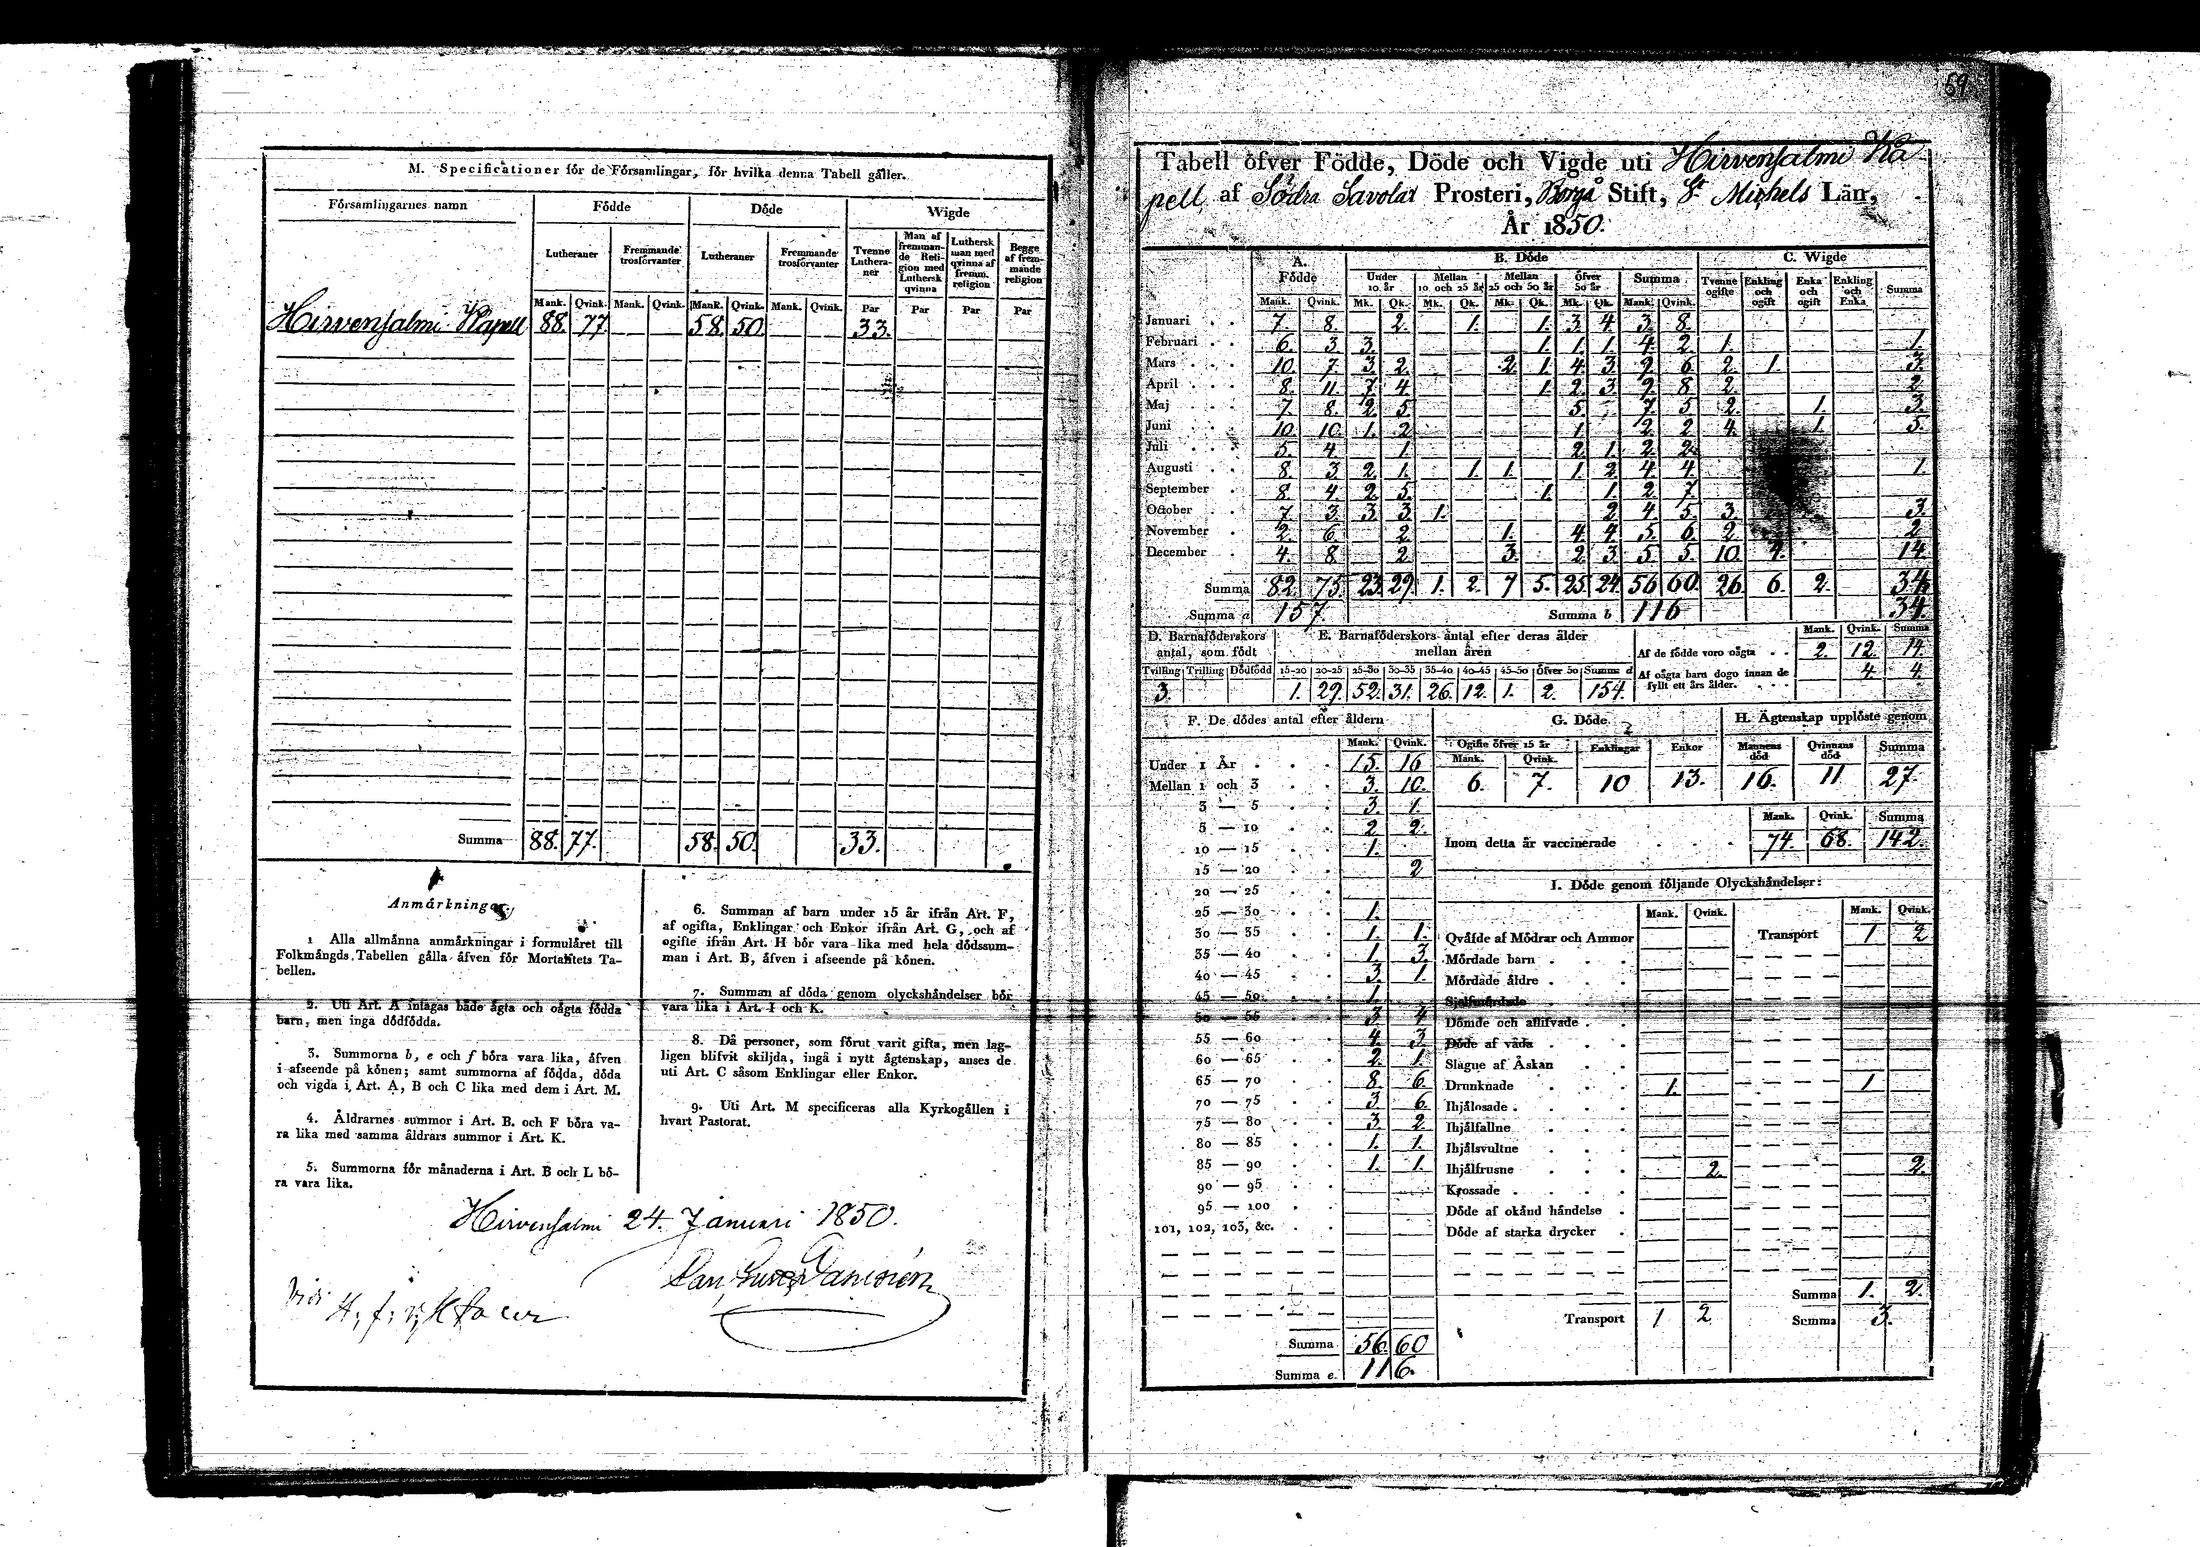 M. Specificationer för de Församlingar, för hvilka denna Tabell gäller.
Församlingarnes namn Födde Döde Wigde
Lutheraner Fremmande trosförvanter Lutheraner Fremmande trosförvanter Tvenne Lutheraner Man af fremmande Religion med Luthersk qvinna Luthersk man med qvinna af fremm. religion Begge af fremmande religion
Mank. Qvink. Mank. Qvink. Mank. Qvink. Mank. Qvink. Par Par Par Par
Hirvensalmi Kapell 88. 77. 58. 50. 33.
Summa 88. 77. 58. 50. 33.
Anmärkningar
1 Alla allmänna anmärkningar i formuläret till
Folkmängds Tabellen gälla äfven för Mortalitets Ta-
bellen.
2. Uti Art. A intagas både ägta och oägta födda
barn, men inga dödfödda.
3. Summorna b, e och f böra vara lika, äfven
i afseende på könen; samt summorna af födda, döda
och vigda i Art. A, B och C lika med dem i Art. M.
4. Åldrarnes summor i Art. B. och F böra va-
ra lika med samma åldrars summor i Art. K.
5. Summorna för månaderna i Art. B och L bö-
ra vara lika.
6. Summan af barn under 15 år ifrån Art. F,
af ogifta, Enklingar och Enkor ifrån Art. G, och af
ogifte ifrån Art. H bör vara lika med hela dödssum-
man i Art. B, äfven i afseende på könen.
7. Summan af döda genom olyckshändelser bör
vara lika i Art. I och K.
8. Då personer, som förut varit gifta, men lag-
ligen blifvit skiljda, ingå i nytt ägtenskap, anses de
uti Art. C såsom Enklingar eller Enkor.
9. Uti Art. M specificeras alla Kyrkogällen i
hvart Pastorat.
Hirvensalmi 24. Januari 1850.
59
Tabell öfver Födde, Döde och Vigde uti Hirvensalmi Ka
pell af Södra Savolax Prosteri, Borgå Stift, St Michels Län,
År 1850.
A. Födde B. Döde C. Wigde
Under 10 år Mellan 10 och 25 år Mellan 25 och 50 år Öfver 50 år Summa Tvenne ogifte Enkling och ogift Enka och ogift Enkling och Enka Summa
Mank. Qvink. Mk. Qk. Mk. Qk. Mk. Qk. Mk. Qk. Mank. Qvink.
Januari 7. 8. 2. 1. 1. 3. 4. 3. 8.
Februari 6. 3. 3. 1. 1. 1. 4. 2. 1. 1.
Mars 10. 7. 3. 2. 2. 1. 4. 3. 9. 6. 2. 1. 3.
April 8. 11. 7. 4. 1. 2. 3. 9. 8. 2. 2.
Maj 7. 8. 2. 5. 5. 7. 5. 2. 1. 3.
Juni 10. 10. 1. 2. 1. 2. 2. 4. 1. 5.
Juli 5. 4. 1. 2. 1. 2. 2.
Augusti 8. 3. 2. 1. 1. 1. 1. 2. 4. 4. 1.
September 8. 4. 2. 5. 1. 1. 2. 7.
October 7. 3. 3. 3. 1. 2. 4. 5. 3. 3.
November 2. 6. 2. 1. 4. 4. 5. 6. 2. 2.
December 4. 8. 2. 3. 2. 3. 5. 5. 10. 4. 14.
Summa 82. 75. 23. 29. 1. 2. 7 5. 25. 24. 56 60. 26 6. 2. 34
Summa a 157. Summa b 116 34
D. Barnaföderskors antal, som födt
Tvilling Trilling Dödfödd
3.
E. Barnaföderskors antal efter deras ålder mellan åren
15-20 20-25 25-30 30-35 35-40 40-45 45-50 Öfver 50 Summa d
1. 29. 52. 31. 26. 12. 1. 2. 154.
Mank. Qvink. Summa
Af de födde voro oägta 2. 12. 14.
Af oägta barn dogo innan de fyllt ett års ålder. 4. 4.
F. De dödes antal efter åldern
Mank. Qvink.
Under 1 År 15. 16
Mellan 1 och 3 3. 10.
3 — 5 3. 1.
5 — 10 2. 2.
10 — 15 1.
15 — 20 2
20 — 25
25 — 30 1.
30 — 35 1. 1.
35 — 40 1. 3.
40 — 45 3. 1.
45 — 50 1.
50 — 55 3 4
55 — 60 4. 3.
60 — 65 2. 1.
65 — 70 8. 6.
70 — 75 3. 6.
75 — 80 3. 2.
80 — 85 1. 1.
85 — 90 1. 1.
90 — 95
95 — 100
101, 102, 103, &c.
Summa 56. 60
Summa e. 116.
G. Döde
Ogifte öfver 15 år Enklingar Enkor
Mank. Qvink.
6. 7. 10 13.
H. Ägtenskap upplöste genom
Mannens död Qvinnans död Summa
16. 11 27.
Mank. Qvink. Summa
Inom detta år vaccinerade 74. 68. 142.
I. Döde genom följande Olyckshändelser:
Mank. Qvink. Mank. Qvink.
Qväfde af Mödrar och Ammor Transport 1 2
Mördade barn
Mördade äldre
Sjelfmördade
Dömde och aflifvade
Döde af våda
Slagne af Åskan
Drunknade 1. 1
Ihjälosade
Ihjälfallne
Ihjälsvultne
Ihjälfrusne 2. 2.
Krossade
Döde af okänd händelse
Döde af starka drycker
Summa 1. 2.
Transport 1 2 Summa 3.